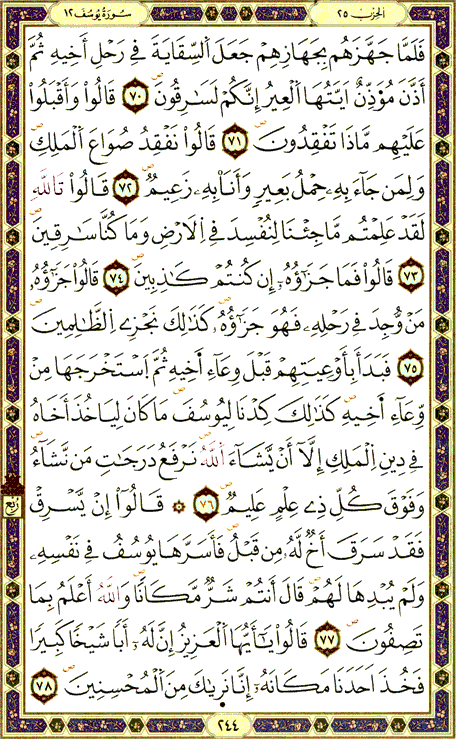 الحزب ٢٥
سورة يوسف ١٢
فَلَمَّا جَهَّزَهُم بِجَهَازِهِمْ جَعَلَ اَلسِّقَايَةَ فِے رَحْلِ أَخِيهِ ثُمَّ
أَذَّنَ مُوَذِّنٌ اَيَّتُهَا اَلْعِيرُ إِنَّكُمْ لَسَٰرِقُونَ ٧٠ قَالُواْ وَأَقْبَلُواْ
عَلَيْهِم مَّاذَا تَفْقِدُونَ ٧١ قَالُواْ نَفْقِدُ صُوَاعَ اَلْمَلِكِ
وَلِمَن جَآءَ بِهِۦ حِمْلُ بَعِيرٖ وَأَنَا بِهِۦ زَعِيمٞ ٧٢ قَالُواْ تَاللَّهِ
لَقَدْ عَلِمْتُم مَّا جِئْنَا لِنُفْسِدَ فِے اِلَارْضِ وَمَا كُنَّا سَٰرِقِينَ
٧٣ قَالُواْ فَمَا جَزَٰٓؤُهُۥٓ إِن كُنتُمْ كَٰذِبِينَ ٧٤ قَالُواْ جَزَٰٓؤُهُۥ
مَنْ وُّجِدَ فِے رَحْلِهِۦ فَهُوَ جَزَٰٓؤُهُۥ كَذَٰلِكَ نَجْزِے اِلظَّٰلِمِينَ
٧٥ فَبَدَأَ بِأَوْعِيَتِهِمْ قَبْلَ وِعَآءِ اَخِيهِ ثُمَّ اَسْتَخْرَجَهَا مِنْ
وِّعَآءِ اَخِيهِ كَذَٰلِكَ كِدْنَا لِيُوسُفَ مَا كَانَ لِيَاخُذَ أَخَاهُ
فِے دِينِ اِلْمَلِكِ إِلَّآ أَنْ يَّشَآءَ اَللَّهُ نَرْفَعُ دَرَجَٰتِ مَن نَّشَآءُ
وَفَوْقَ كُلِّ ذِے عِلْمٍ عَلِيمٞ ٧٦ ۞ قَالُوٓاْ إِنْ يَّسْرِقْ
فَقَدْ سَرَقَ أَخٞ لَّهُۥ مِن قَبْلُ فَأَسَرَّهَا يُوسُفُ فِے نَفْسِهِۦ
وَلَمْ يُبْدِهَا لَهُمْ قَالَ أَنتُمْ شَرّٞ مَّكَانٗا وَاللَّهُ أَعْلَمُ بِمَا
تَصِفُونَ ٧٧ قَالُواْ يَٰٓأَيُّهَا اَلْعَزِيزُ إِنَّ لَهُۥٓ أَبٗا شَيْخٗا كَبِيرٗا
فَخُذَ اَحَدَنَا مَكَانَهُۥٓ إِنَّا نَرَىٰكَ مِنَ اَلْمُحْسِنِينَ ٧٨
ربع
٢٤٤